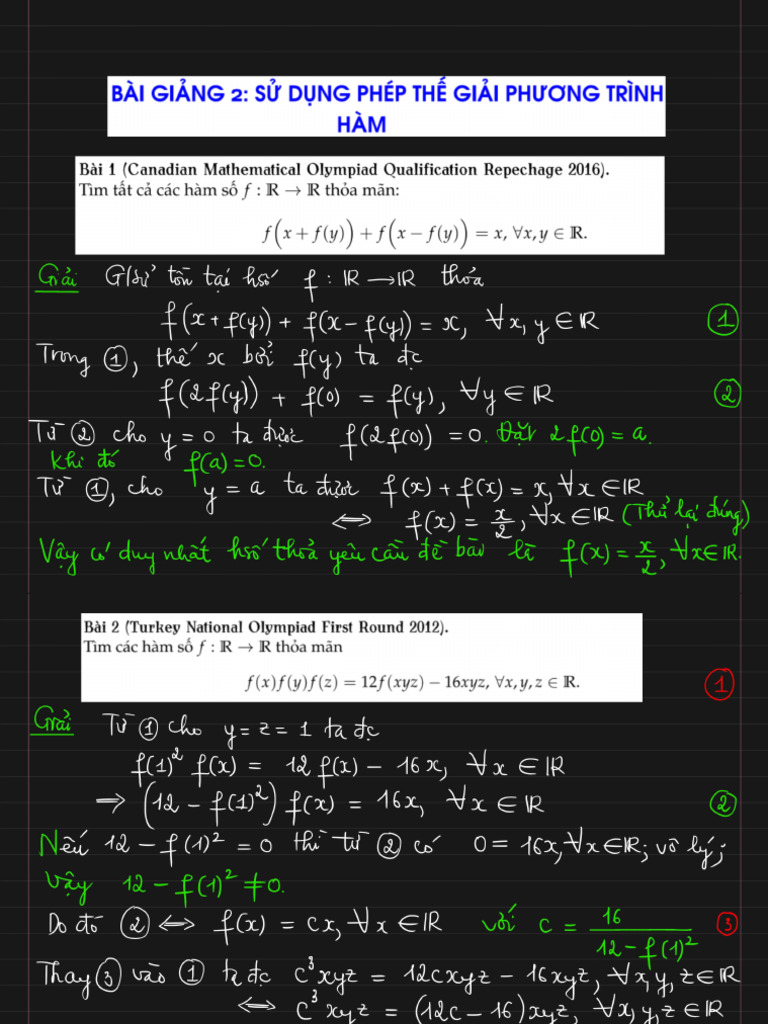 BÀI GIẢNG 2: SỬ DỤNG PHÉP THẾ GIẢI PHƯƠNG TRÌNH
HÀM
Bài 1 (Canadian Mathematical Olympiad Qualification Repechage 2016).
Tìm tất cả các hàm số f : ℝ → ℝ thỏa mãn:
f(x + f(y)) + f(x − f(y)) = x, ∀x, y ∈ ℝ.
Giải G/sử tồn tại hsố f : ℝ → ℝ thỏa
f(x + f(y)) + f(x − f(y)) = x, ∀x, y ∈ ℝ ①
Trong ①, thế x bởi f(y) ta đc
f(2f(y)) + f(0) = f(y), ∀y ∈ ℝ ②
Từ ② cho y = 0 ta được f(2f(0)) = 0. Đặt 2f(0) = a.
Khi đó f(a) = 0.
Từ ①, cho y = a ta được f(x) + f(x) = x, ∀x ∈ ℝ
⇔ f(x) = x/2, ∀x ∈ ℝ (Thử lại đúng)
Vậy có duy nhất hsố thỏa yêu cầu đề bài là f(x) = x/2, ∀x ∈ ℝ.
Bài 2 (Turkey National Olympiad First Round 2012).
Tìm các hàm số f : ℝ → ℝ thỏa mãn
f(x)f(y)f(z) = 12f(xyz) − 16xyz, ∀x, y, z ∈ ℝ. ①
Giải Từ ① cho y = z = 1 ta đc
f(1)² f(x) = 12f(x) − 16x, ∀x ∈ ℝ
⇒ (12 − f(1)²) f(x) = 16x, ∀x ∈ ℝ ②
Nếu 12 − f(1)² = 0 thì từ ② có 0 = 16x, ∀x ∈ ℝ; vô lý;
Vậy 12 − f(1)² ≠ 0.
Do đó ② ⇔ f(x) = cx, ∀x ∈ ℝ với c = 16/(12 − f(1)²) ③
Thay ③ vào ① ta đc c³xyz = 12cxyz − 16xyz, ∀x, y, z ∈ ℝ
⇔ c³xyz = (12c − 16)xyz, ∀x, y, z ∈ ℝ